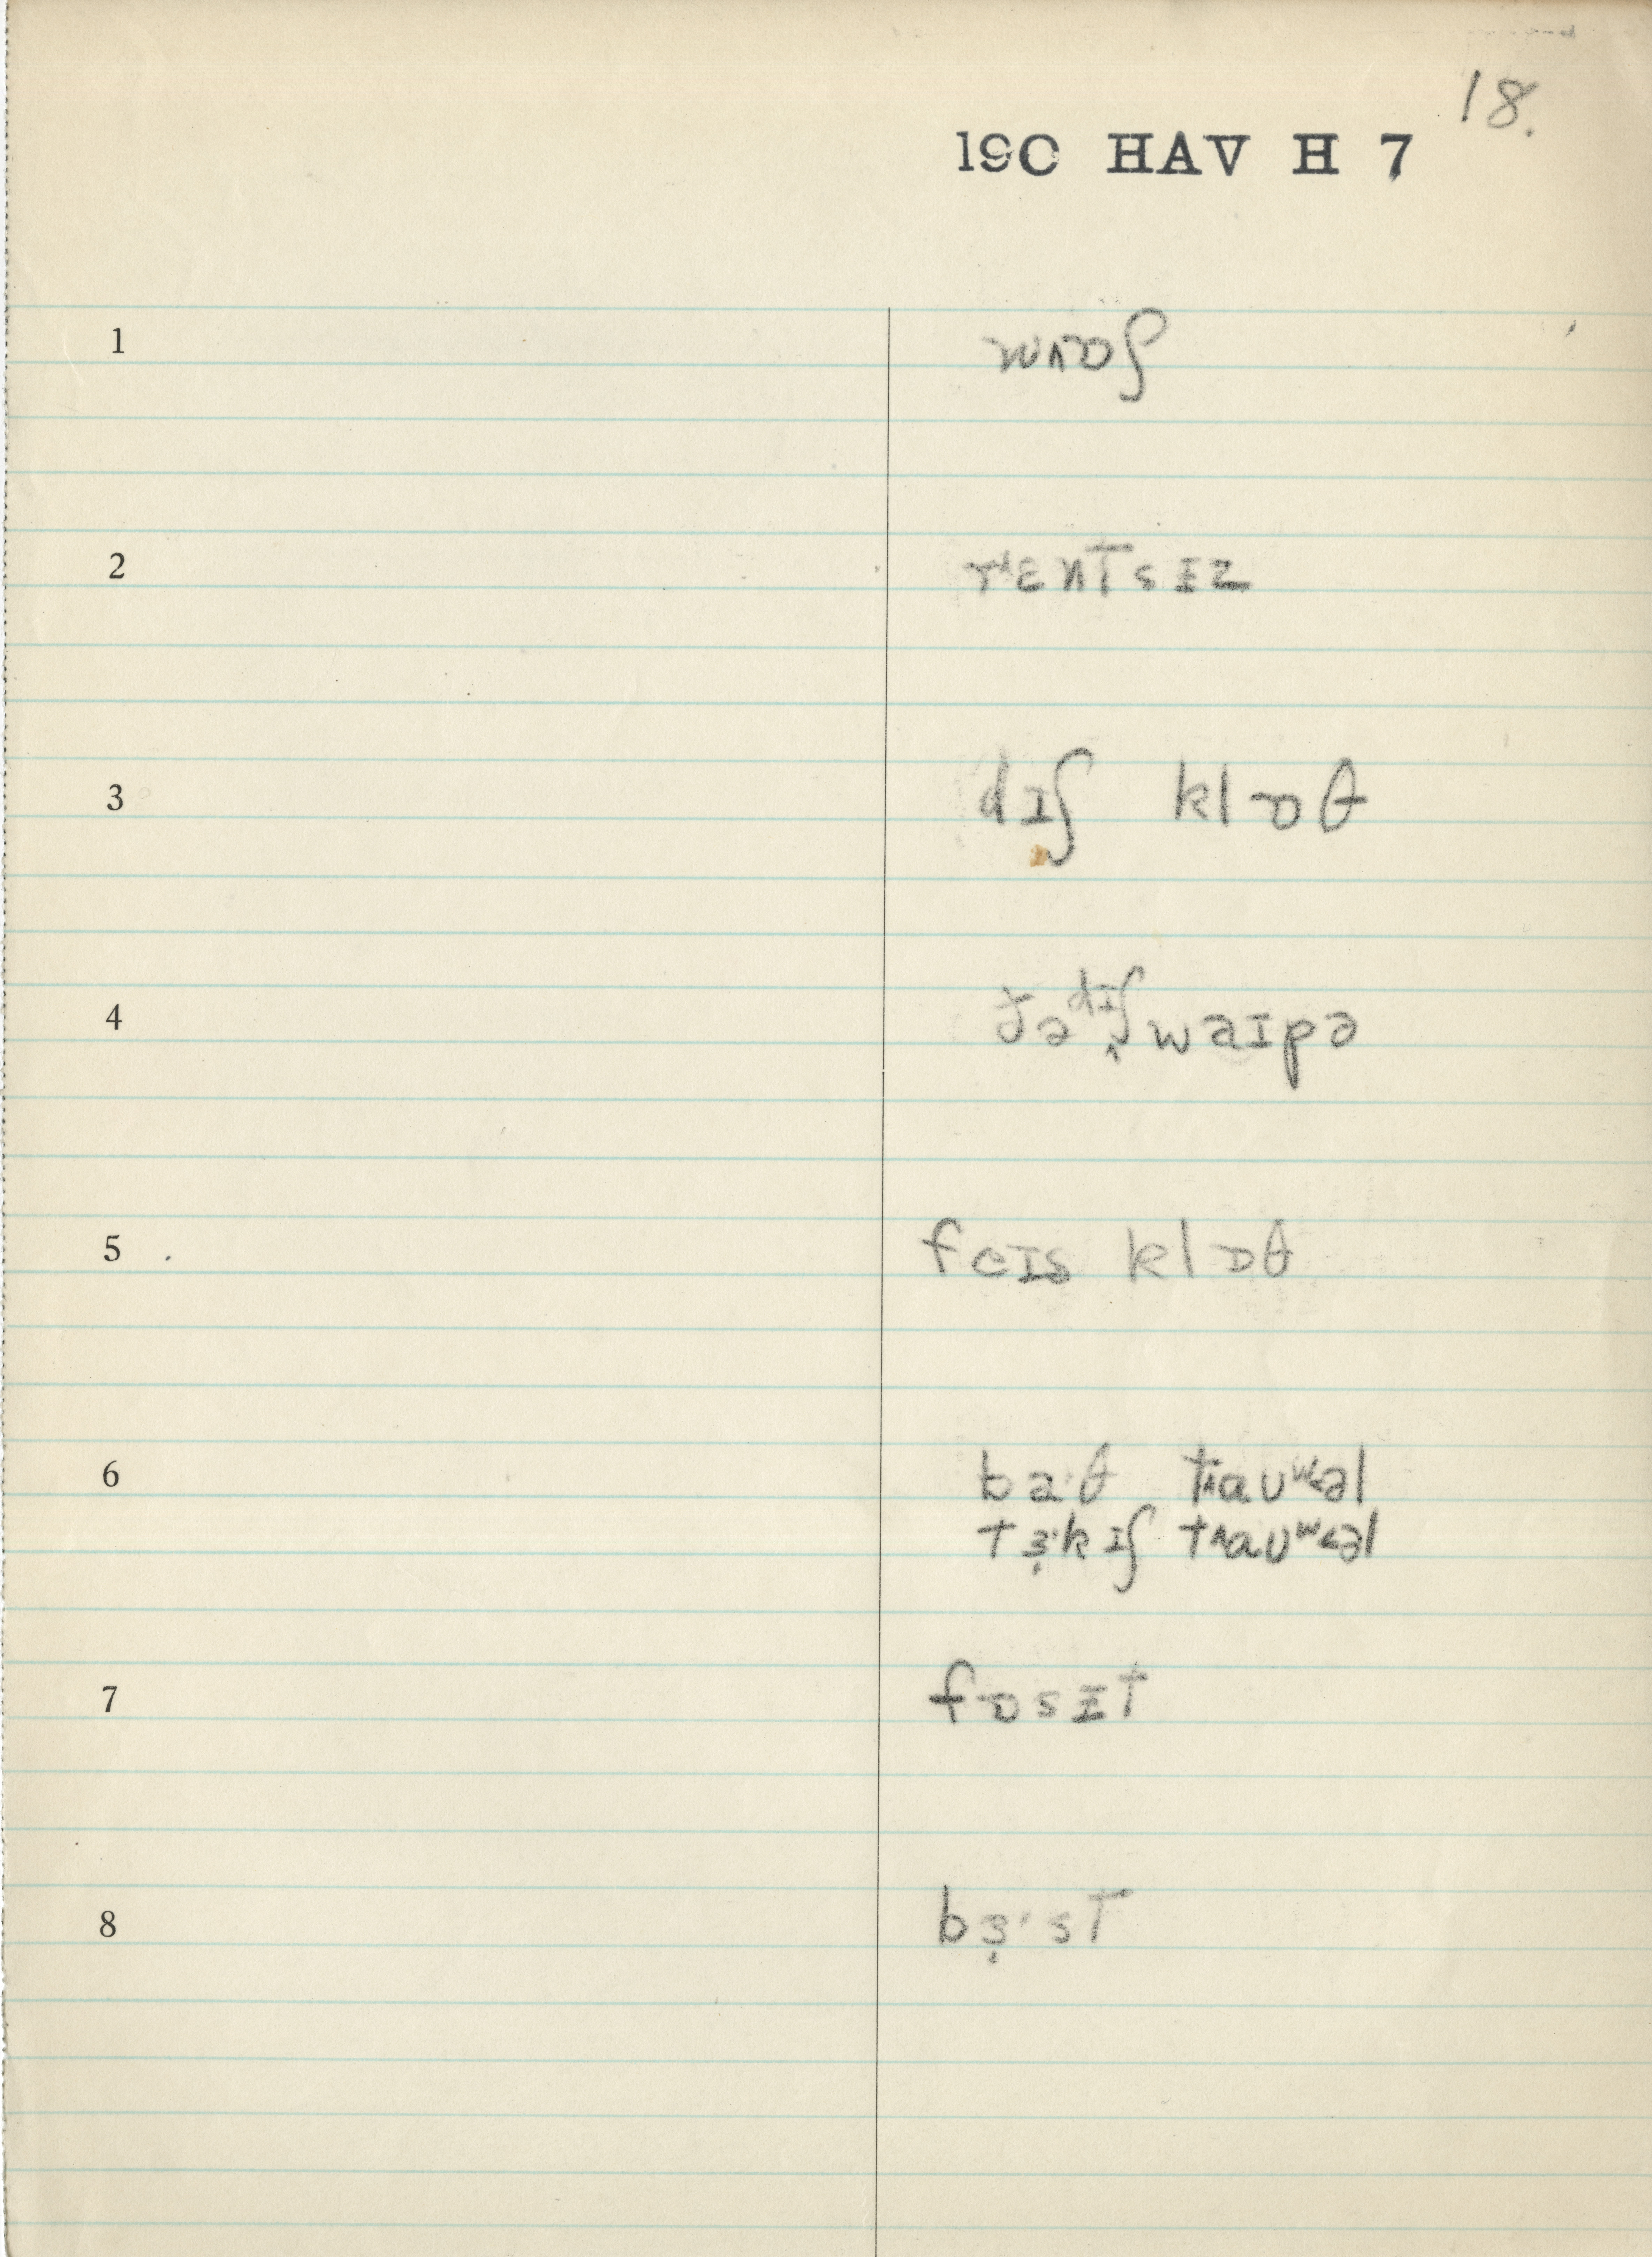 18.
190 HAV H 7
1 wɒʃ
2 rɛntsɪz
3 dɪʃ klɒθ
4 ðə dɪʃ waɪpə
5 feɪs klɒθ
6 ba·θ traʊʷəl
tɜ̣·kɪʃ traʊʷəl
7 fɒsɪt
8 bɜ̣·st